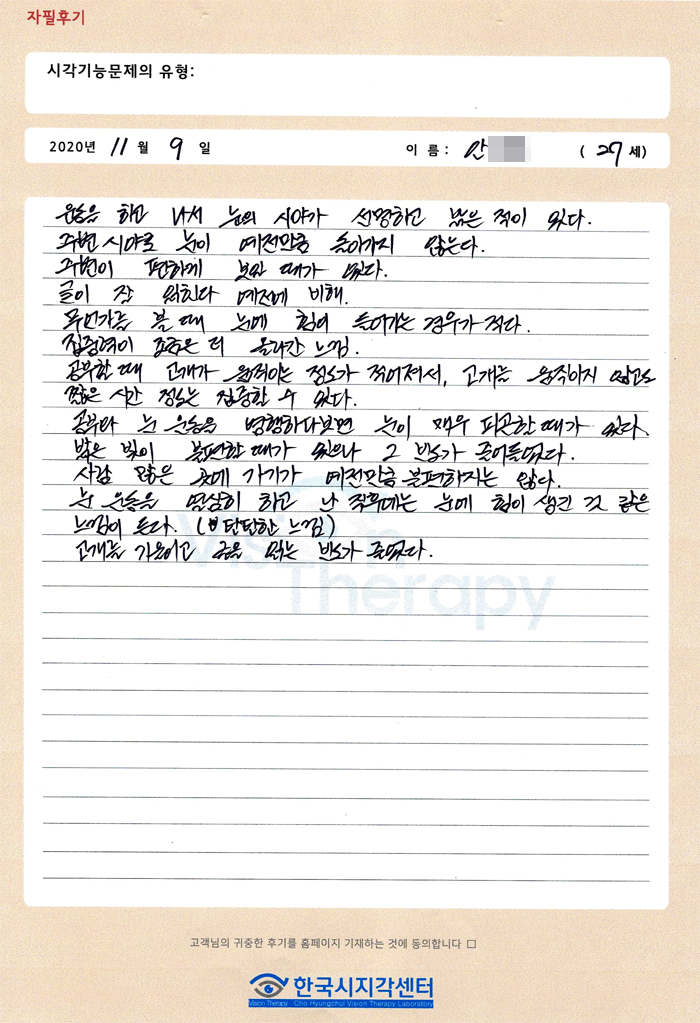 자필후기
시각기능문제의 유형:
2020년 11월 9일 이 름 : 안 ( 27 세)
운동을 하고 나서 눈의 시야가 선명하고 넓은 적이 있다.
주변 시야로 눈이 예전만큼 돌아가지 않는다.
주변이 편하게 보일 때가 있다.
글이 잘 읽힌다 예전에 비해.
무언가를 볼 때 눈에 힘이 들어가는 경우가 적다.
집중력이 조금은 더 올라간 느낌.
공부할 때 고개가 움직이는 정도가 적어져서, 고개를 움직이지 않고도
짧은 시간 정도는 집중할 수 있다.
공부와 눈 운동을 병행하다보면 눈이 매우 피곤한 때가 있다.
밝은 빛이 불편한 때가 있으나 그 빈도가 줄어들었다.
사람 많은 곳에 가기가 예전만큼 불편하지는 않다.
눈 운동을 열심히 하고 난 직후에는 눈에 힘이 생긴 것 같은
느낌이 든다. (단단한 느낌)
고개를 기울이고 글을 읽는 빈도가 줄었다.
Vision
Therapy
고객님의 귀중한 후기를 홈페이지 기재하는 것에 동의합니다 □
한국시지각센터
Vision Therapy Cho Hyungchul Vision Therapy Laboratory